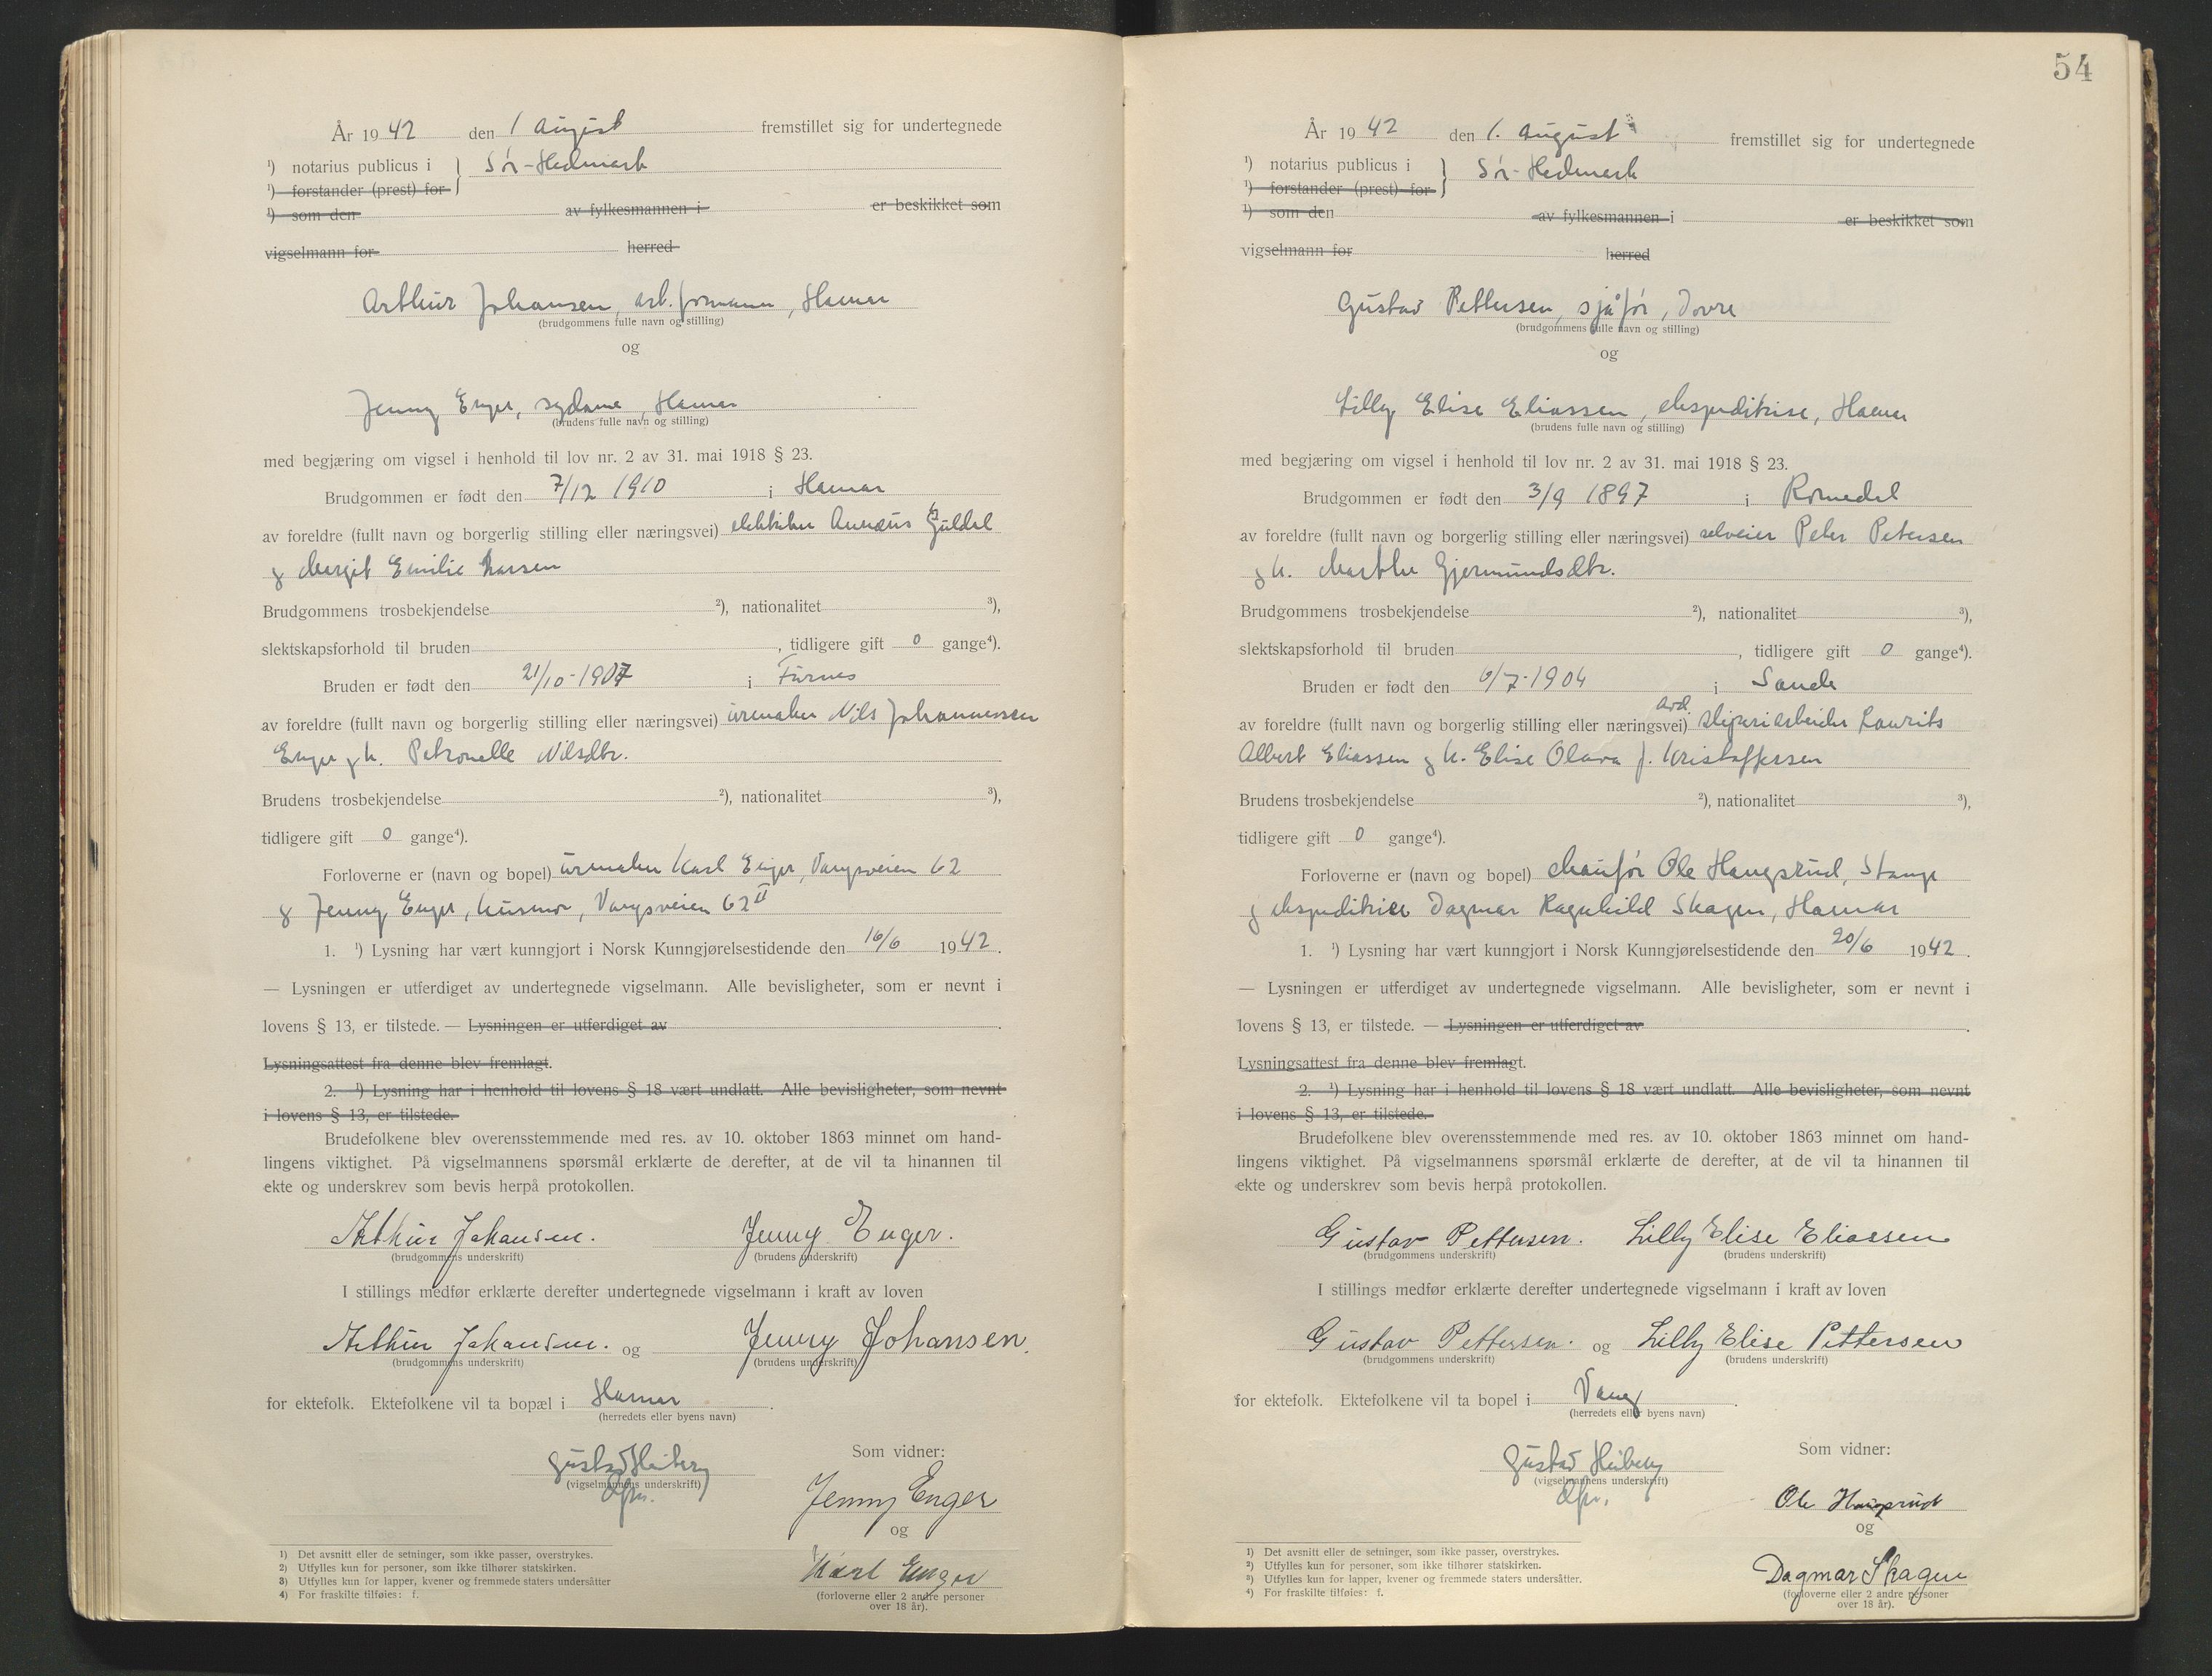 År 1942 den 1 august fremstillet sig for undertegnede
¹) notarius publicus i } Sør-Hedmark
¹) forstander (prest) for
¹) som den av fylkesmannen i er beskikket som
vigselmann for herred
Arthur Johansen, arb.formann, Hamar
(brudgommens fulle navn og stilling)
og
Jenny Enger, sydame, Hamar
(brudens fulle navn og stilling)
med begjæring om vigsel i henhold til lov nr. 2 av 31. mai 1918 § 23.
Brudgommen er født den 7/12 1910 i Hamar
av foreldre (fullt navn og borgerlig stilling eller næringsvei) elektriker Annæus Guldal
og Margit Emilie Larsen
Brudgommens trosbekjendelse ²), nationalitet ³),
slektskapsforhold til bruden , tidligere gift 0 gange⁴).
Bruden er født den 21/10-1907 i Furnes
av foreldre (fullt navn og borgerlig stilling eller næringsvei) urmaker Nils Johannessen
Enger og h. Petronelle Nilsdtr.
Brudens trosbekjendelse ²), nationalitet ³),
tidligere gift 0 gange⁴).
Forloverne er (navn og bopel) urmaker Karl Enger, Vangsveien 62
og Jenny Enger, husmor, Vangsveien 62 II
1. ¹) Lysning har vært kunngjort i Norsk Kunngjørelsestidende den 16/6 1942.
— Lysningen er utferdiget av undertegnede vigselmann. Alle bevisligheter, som er nevnt i
lovens § 13, er tilstede. — Lysningen er utferdiget av .
Lysningsattest fra denne blev fremlagt.
2. ¹) Lysning har i henhold til lovens § 18 vært undlatt. Alle bevisligheter, som nevnt
i lovens § 13, er tilstede.
Brudefolkene blev overensstemmende med res. av 10. oktober 1863 minnet om hand-
lingens viktighet. På vigselmannens spørsmål erklærte de derefter, at de vil ta hinannen til
ekte og underskrev som bevis herpå protokollen.
Arthur Johansen. Jenny Enger.
(brudgommens underskrift) (brudens underskrift)
I stillings medfør erklærte derefter undertegnede vigselmann i kraft av loven
Arthur Johansen. og Jenny Johansen.
(brudgommens underskrift) (brudens underskrift)
for ektefolk. Ektefolkene vil ta bopæl i Hamar .
(herredets eller byens navn)
Gustav Heiberg
(vigselmannens underskrift)
Som vidner:
Jenny Enger
og
Karl Enger
(forloverne eller 2 andre personer
over 18 år).
1) Det avsnitt eller de setninger, som ikke passer, overstrykes.
2) Utfylles kun for personer, som ikke tilhører statskirken.
3) Utfylles kun for lapper, kvener og fremmede staters undersåtter
4) For fraskilte tilføies: f.
54
År 1942 den 1. august fremstillet sig for undertegnede
¹) notarius publicus i } Sør-Hedmark
¹) forstander (prest) for
¹) som den av fylkesmannen i er beskikket som
vigselmann for herred
Gustav Pettersen, sjåfør, Dovre
(brudgommens fulle navn og stilling)
og
Lilly Elise Eliassen, ekspeditrise, Hamar
(brudens fulle navn og stilling)
med begjæring om vigsel i henhold til lov nr. 2 av 31. mai 1918 § 23.
Brudgommen er født den 3/9 1897 i Romedal
av foreldre (fullt navn og borgerlig stilling eller næringsvei) selveier Peter Petersen
og h. Marthe Gjermundsdtr.
Brudgommens trosbekjendelse ²), nationalitet ³),
slektskapsforhold til bruden , tidligere gift 0 gange⁴).
Bruden er født den 6/7-1904 i Sande
avd.
av foreldre (fullt navn og borgerlig stilling eller næringsvei) sliperiarbeider Laurits
Albert Eliassen og h. Elise Olava f. Kristoffersen
Brudens trosbekjendelse ²), nationalitet ³),
tidligere gift 0 gange⁴).
Forloverne er (navn og bopel) chaufør Ole Haugsrud, Stange
og ekspeditrise Dagmar Ragnhild Skagen, Hamar
1. ¹) Lysning har vært kunngjort i Norsk Kunngjørelsestidende den 20/6 1942.
— Lysningen er utferdiget av undertegnede vigselmann. Alle bevisligheter, som er nevnt i
lovens § 13, er tilstede. — Lysningen er utferdiget av .
Lysningsattest fra denne blev fremlagt.
2. ¹) Lysning har i henhold til lovens § 18 vært undlatt. Alle bevisligheter, som nevnt
i lovens § 13, er tilstede.
Brudefolkene blev overensstemmende med res. av 10. oktober 1863 minnet om hand-
lingens viktighet. På vigselmannens spørsmål erklærte de derefter, at de vil ta hinannen til
ekte og underskrev som bevis herpå protokollen.
Gustav Pettersen. Lilly Elise Eliassen
(brudgommens underskrift) (brudens underskrift)
I stillings medfør erklærte derefter undertegnede vigselmann i kraft av loven
Gustav Pettersen. og Lilly Elise Pettersen
(brudgommens underskrift) (brudens underskrift)
for ektefolk. Ektefolkene vil ta bopel i Vang .
(herredets eller byens navn)
Gustav Heiberg
(vigselmannens underskrift)
Som vidner:
Ole Haugsrud
og
Dagmar Skagen
(forloverne eller 2 andre personer
over 18 år).
¹) Det avsnitt eller de setninger, som ikke passer, overstrykes.
²) Utfylles kun for personer, som ikke tilhører statskirken.
³) Utfylles kun for lapper, kvener og fremmede staters undersåtter.
⁴) For fraskilte tilføies: f.